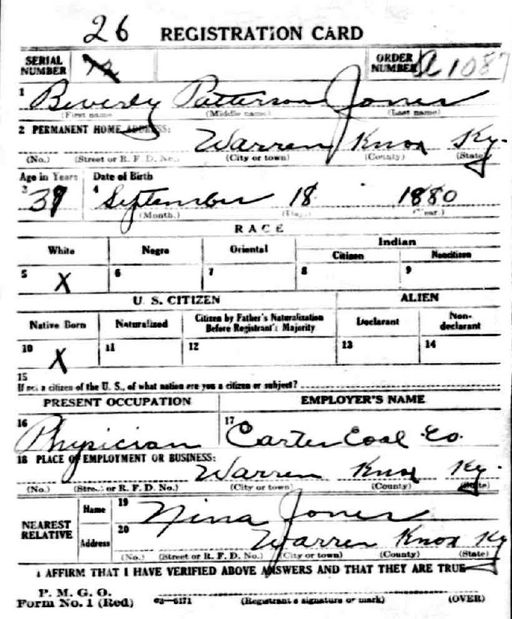 26 REGISTRATION CARD
SERIAL NUMBER 12 ORDER NUMBER A1087
1 Beverly Patterson Jones
(First name) (Middle name) (Last name)
2 PERMANENT HOME ADDRESS: Warren Knox Ky.
(No.) (Street or R. F. D. No.) (City or town) (County) (State)
Age in Years Date of Birth
3 37 4 September 18 1880
(Month.) (Day.) (Year.)
RACE
White Negro Oriental Indian
Citizen Noncitizen
5 X 6 7 8 9
U. S. CITIZEN ALIEN
Native Born Naturalized Citizen by Father's Naturalization Before Registrant's Majority Declarant Non-declarant
10 X 11 12 13 14
15
If not a citizen of the U. S., of what nation are you a citizen or subject?
PRESENT OCCUPATION EMPLOYER'S NAME
16 Physician 17 Carter Coal Co.
18 PLACE OF EMPLOYMENT OR BUSINESS: Warren Knox Ky.
(No.) (Street or R. F. D. No.) (City or town) (County) (State)
NEAREST RELATIVE Name 19 Nina Jones
Address 20 Warren Knox Ky
(No.) (Street or R. F. D. No.) (City or town) (County) (State)
I AFFIRM THAT I HAVE VERIFIED ABOVE ANSWERS AND THAT THEY ARE TRUE
P. M. G. O.
Form No. 1 (Red) 03-6171 (Registrant's signature or mark) (OVER)